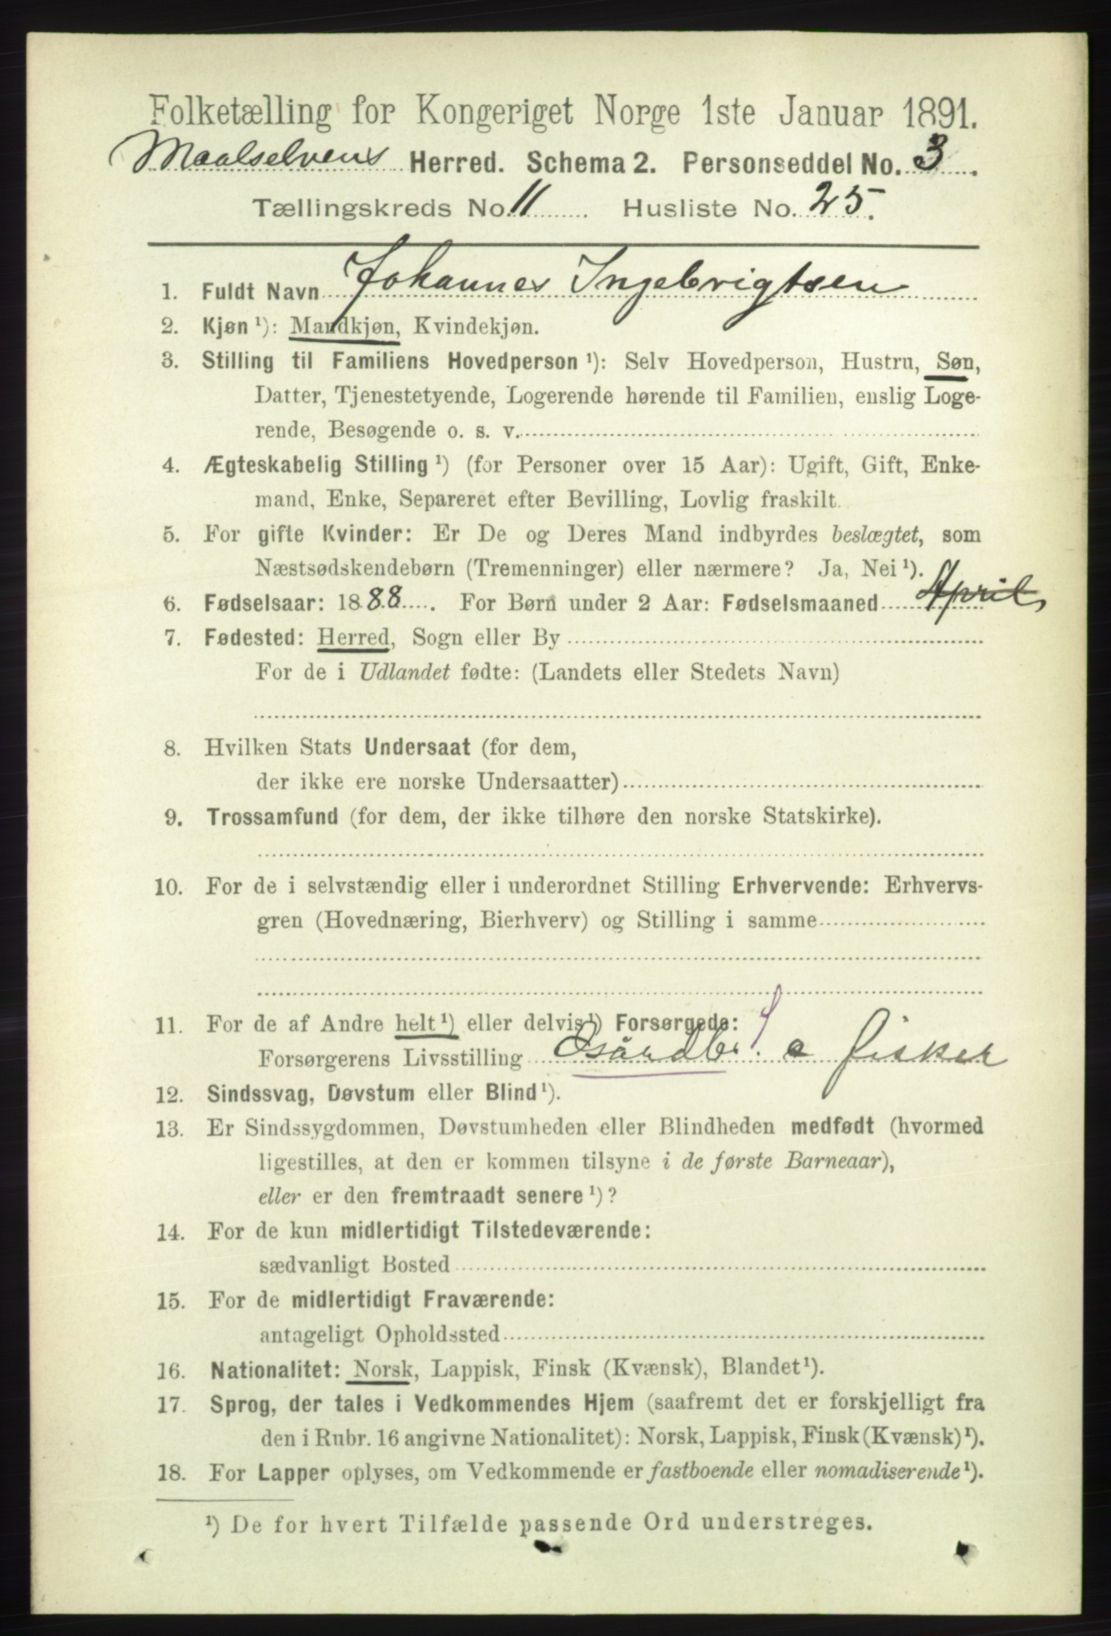 Folketælling for Kongeriget Norge 1ste Januar 1891.
Maalselvens Herred. Schema 2. Personseddel No. 3.
Tællingskreds No. 11. Husliste No. 25.
1. Fuldt Navn Johannes Ingebrigtsen
2. Kjøn ¹): Mandkjøn, Kvindekjøn.
3. Stilling til Familiens Hovedperson ¹): Selv Hovedperson, Hustru, Søn,
Datter, Tjenestetyende, Logerende hørende til Familien, enslig Loge-
rende, Besøgende o. s. v.
4. Ægteskabelig Stilling ¹) (for Personer over 15 Aar): Ugift, Gift, Enke-
mand, Enke, Separeret efter Bevilling, Lovlig fraskilt.
5. For gifte Kvinder: Er De og Deres Mand indbyrdes beslægtet, som
Næstsødskendebørn (Tremenninger) eller nærmere? Ja, Nei ¹).
6. Fødselsaar: 1888. For Børn under 2 Aar: Fødselsmaaned April
7. Fødested: Herred, Sogn eller By
For de i Udlandet fødte: (Landets eller Stedets Navn)
8. Hvilken Stats Undersaat (for dem,
der ikke ere norske Undersaatter)
9. Trossamfund (for dem, der ikke tilhøre den norske Statskirke).
10. For de i selvstændig eller i underordnet Stilling Erhvervende: Erhvervs-
gren (Hovednæring, Bierhverv) og Stilling i samme
11. For de af Andre helt ¹) eller delvis ¹) Forsørgede:
Forsørgerens Livsstilling Gsårdbr. o fisker
12. Sindssvag, Døvstum eller Blind ¹).
13. Er Sindssygdommen, Døvstumheden eller Blindheden medfødt (hvormed
ligestilles, at den er kommen tilsyne i de første Barneaar),
eller er den fremtraadt senere ¹)?
14. For de kun midlertidigt Tilstedeværende:
sædvanligt Bosted
15. For de midlertidigt Fraværende:
antageligt Opholdssted
16. Nationalitet: Norsk, Lappisk, Finsk (Kvænsk), Blandet ¹).
17. Sprog, der tales i Vedkommendes Hjem (saafremt det er forskjelligt fra
den i Rubr. 16 angivne Nationalitet): Norsk, Lappisk, Finsk (Kvænsk) ¹).
18. For Lapper oplyses, om Vedkommende er fastboende eller nomadiserende ¹).
¹) De for hvert Tilfælde passende Ord understreges.